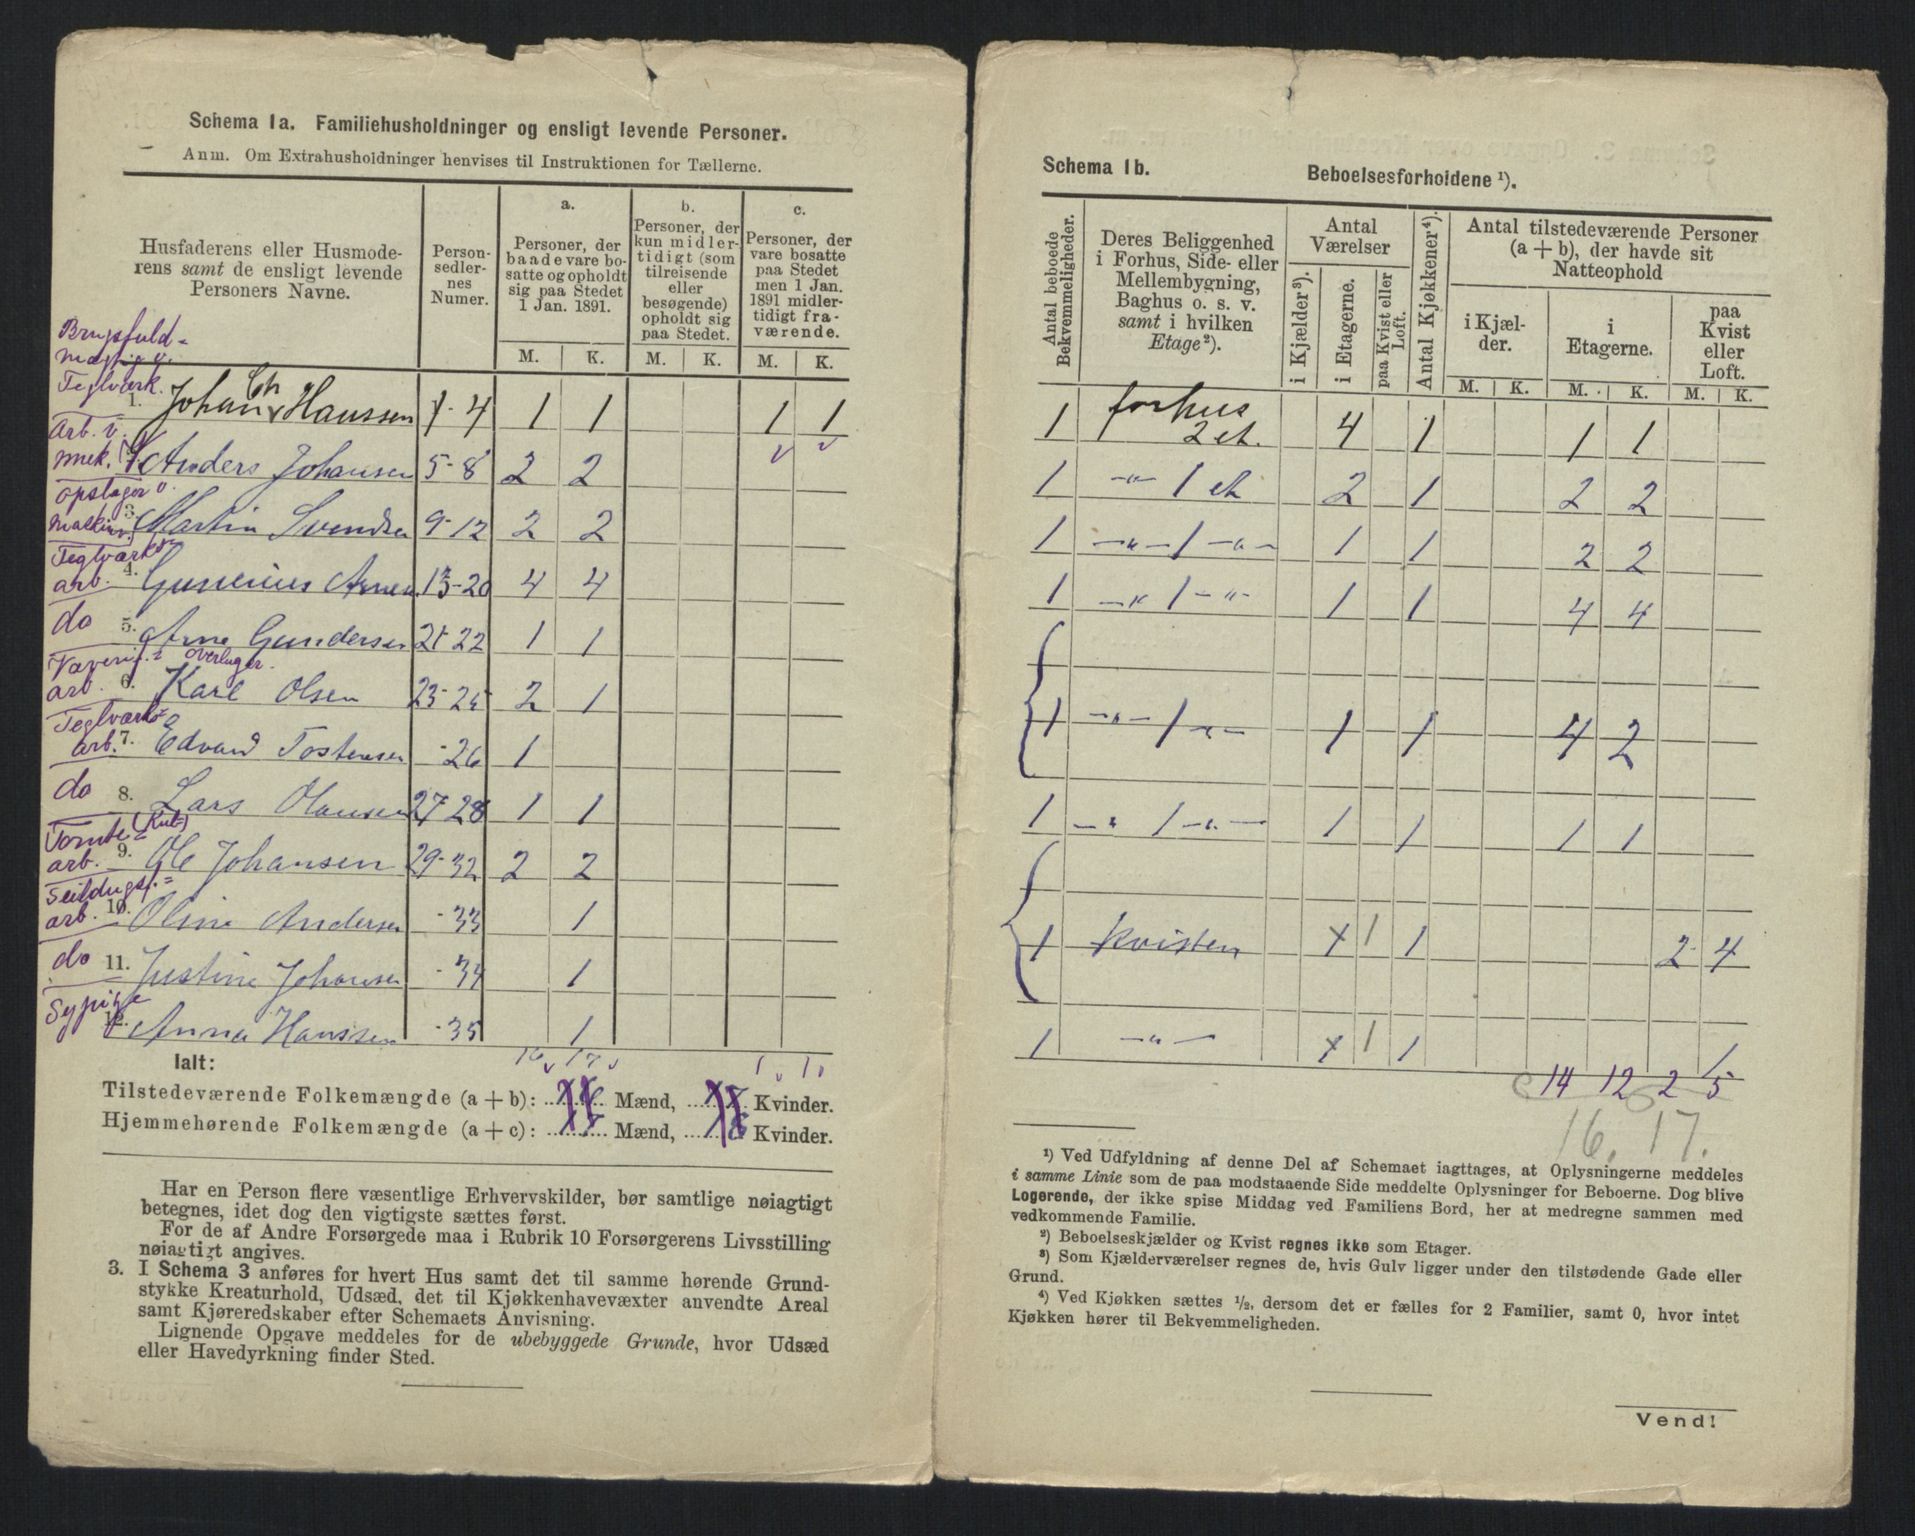 Schema 1a. Familiehusholdninger og ensligt levende Personer.
Anm. Om Extrahusholdninger henvises til Instruktionen for Tællerne.
Husfaderens eller Husmode-
rens samt de ensligt levende
Personers Navne.
Person-
sedler-
nes
Numer.
a.
Personer, der
baade vare bo-
satte og opholdt
sig paa Stedet
1 Jan. 1891.
b.
Personer, der
kun midler-
tidigt (som
tilreisende
eller
besøgende)
opholdt sig
paa Stedet.
c.
Personer, der
vare bosatte
paa Stedet
men 1 Jan.
1891 midler-
tidigt fra-
værende.
M. K. M. K. M. K.
Teglværk.
1. Johan Chr Hanssen 1-4 1 1 1 1
Arb. v.
mek. Anders Johansen 5-8 2 2
3. Martin Svendsen 9-12 2 2
Teglværks
arb. 4. Gunerius Arnesen 13-20 4 4
do 5. Arne Gundersen 21-22 1 1
arb. 6. Karl Olsen 23-25 2 1
Teglværks
arb. 7. Edvard Tostensen -26 1
do 8. Lars Olausen 27-28 1 1
Tomte
arb. 9. Ole Johansen 29-32 2 2
Seildugsf.
arb. 10. Oline Andersen -33 1
do 11. Justine Johansen -34 1
Sypige
12. Anna Hanssen -35 1
Ialt: 16 17 1 1
Tilstedeværende Folkemængde (a + b): Mænd, Kvinder.
Hjemmehørende Folkemængde (a + c): Mænd, Kvinder.
Har en Person flere væsentlige Erhvervskilder, bør samtlige nøiagtigt
betegnes, idet dog den vigtigste sættes først.
For de af Andre Forsørgede maa i Rubrik 10 Forsørgerens Livsstilling
nøiagtigt angives.
3. I Schema 3 anføres for hvert Hus samt det til samme hørende Grund-
stykke Kreaturhold, Udsæd, det til Kjøkkenhavevæxter anvendte Areal
samt Kjøreredskaber efter Schemaets Anvisning.
Lignende Opgave meddeles for de ubebyggede Grunde, hvor Udsæd
eller Havedyrkning finder Sted.
Schema 1b. Beboelsesforholdene ¹).
Antal beboede
Bekvemmeligheder.
Deres Beliggenhed
i Forhus, Side- eller
Mellembygning,
Baghus o. s. v.
samt i hvilken
Etage²).
Antal
Værelser
i Kjælder³).
i Etagerne.
paa Kvist eller
Loft.
Antal Kjøkkener⁴).
Antal tilstedeværende Personer
(a + b), der havde sit
Natteophold
i Kjæl-
der.
i
Etagerne.
paa
Kvist
eller
Loft.
M. K. M. K. M. K.
1 forhus
2 et. 4 1 1 1
1 -"- 1 et 2 1 2 2
1 -"- 1 -"- 1 1 2 2
1 -"- 1 -"- 1 1 4 4
1 -"- 1 -"- 1 1 4 2
1 -"- 1 -"- 1 1 1 1
1 kvisten 1 1 2 4
1 -"- 1 1 1
14 12 2 5
16. 17.
¹) Ved Udfyldning af denne Del af Schemaet iagttages, at Oplysningerne meddeles
i samme Linie som de paa modstaaende Side meddelte Oplysninger for Beboerne. Dog blive
Logerende, der ikke spise Middag ved Familiens Bord, her at medregne sammen med
vedkommende Familie.
²) Beboelseskjælder og Kvist regnes ikke som Etager.
³) Som Kjælderværelser regnes de, hvis Gulv ligger under den tilstødende Gade eller
Grund.
⁴) Ved Kjøkken sættes ½, dersom det er fælles for 2 Familier, samt 0, hvor intet
Kjøkken hører til Bekvemmeligheden.
Vend!